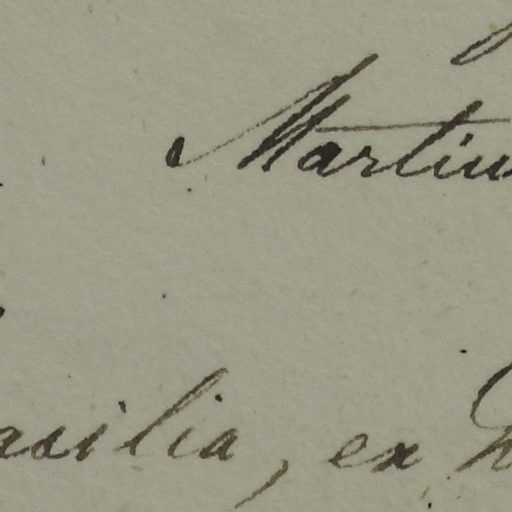 Martiu
asilia, ex